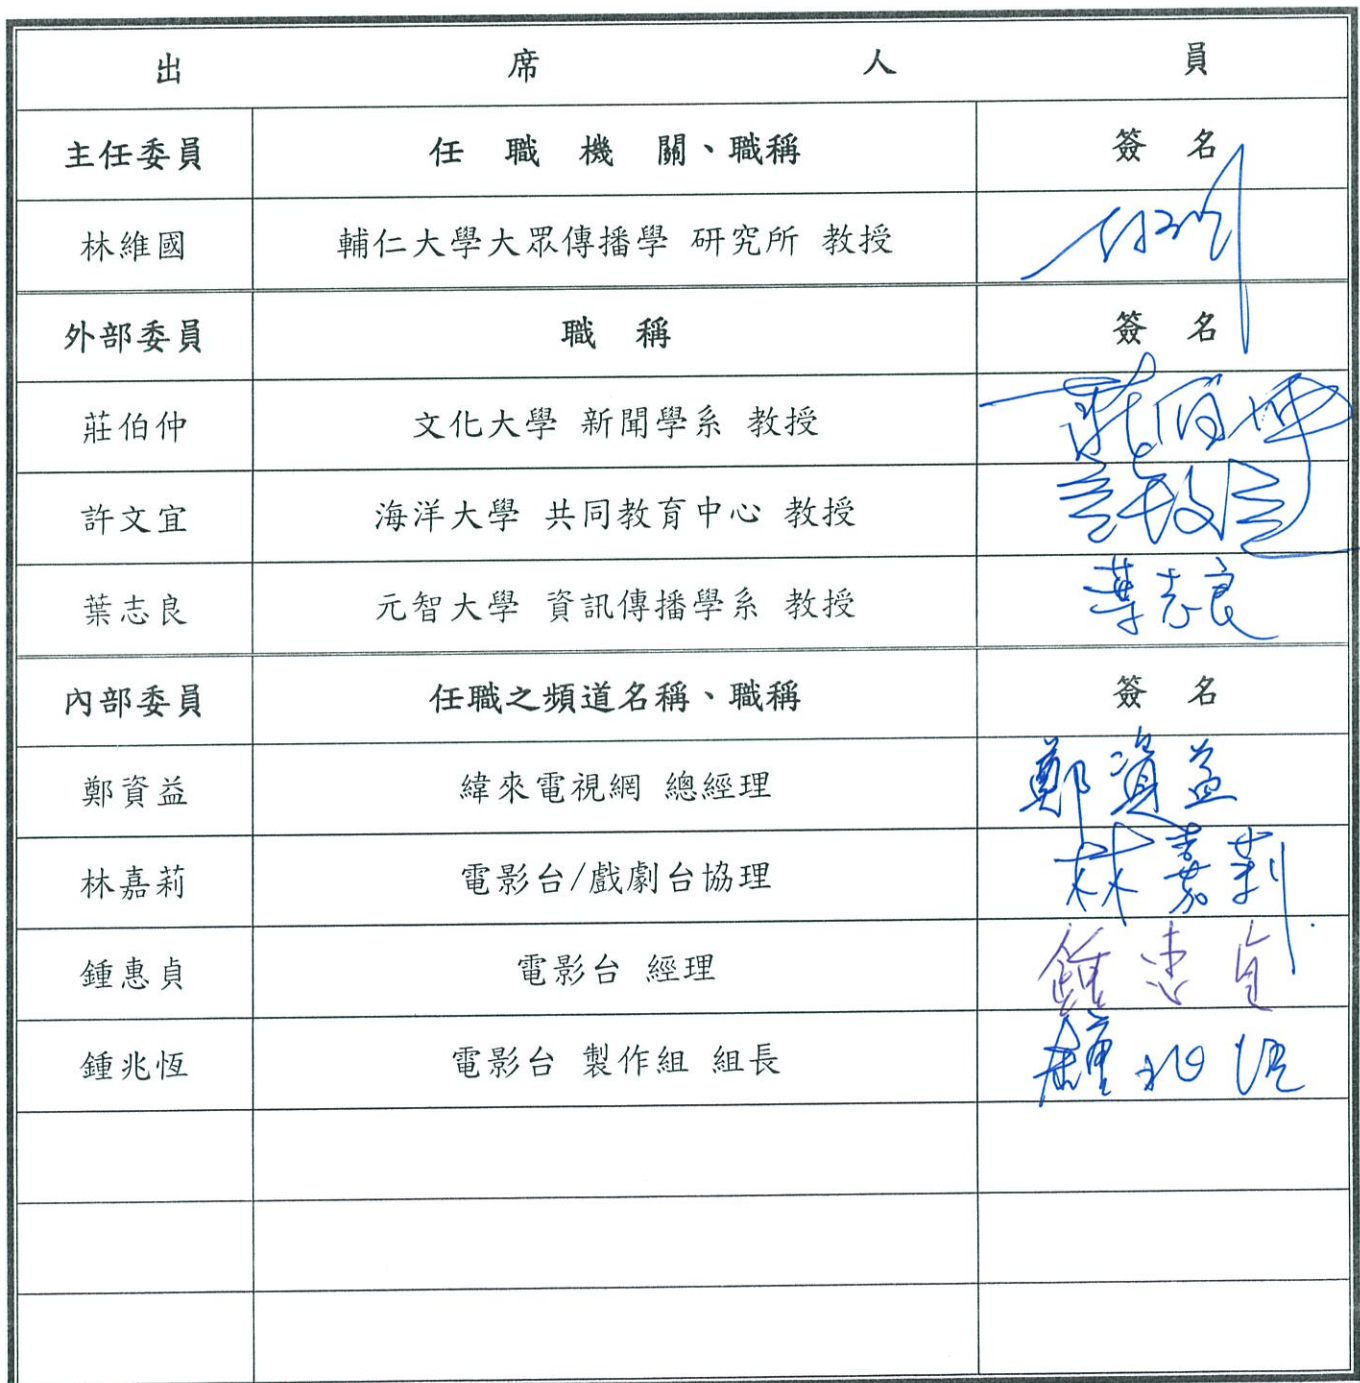 出 席 人 員
主任委員 任 職 機 關、職稱 簽 名
林維國 輔仁大學大眾傳播學 研究所 教授
外部委員 職 稱 簽 名
莊伯仲 文化大學 新聞學系 教授 莊伯仲
許文宜 海洋大學 共同教育中心 教授 許文宜
葉志良 元智大學 資訊傳播學系 教授 葉志良
內部委員 任職之頻道名稱、職稱 簽 名
鄭資益 緯來電視網 總經理 鄭資益
林嘉莉 電影台/戲劇台協理 林嘉莉
鍾惠貞 電影台 經理 鍾惠貞
鍾兆恆 電影台 製作組 組長 鍾兆恆